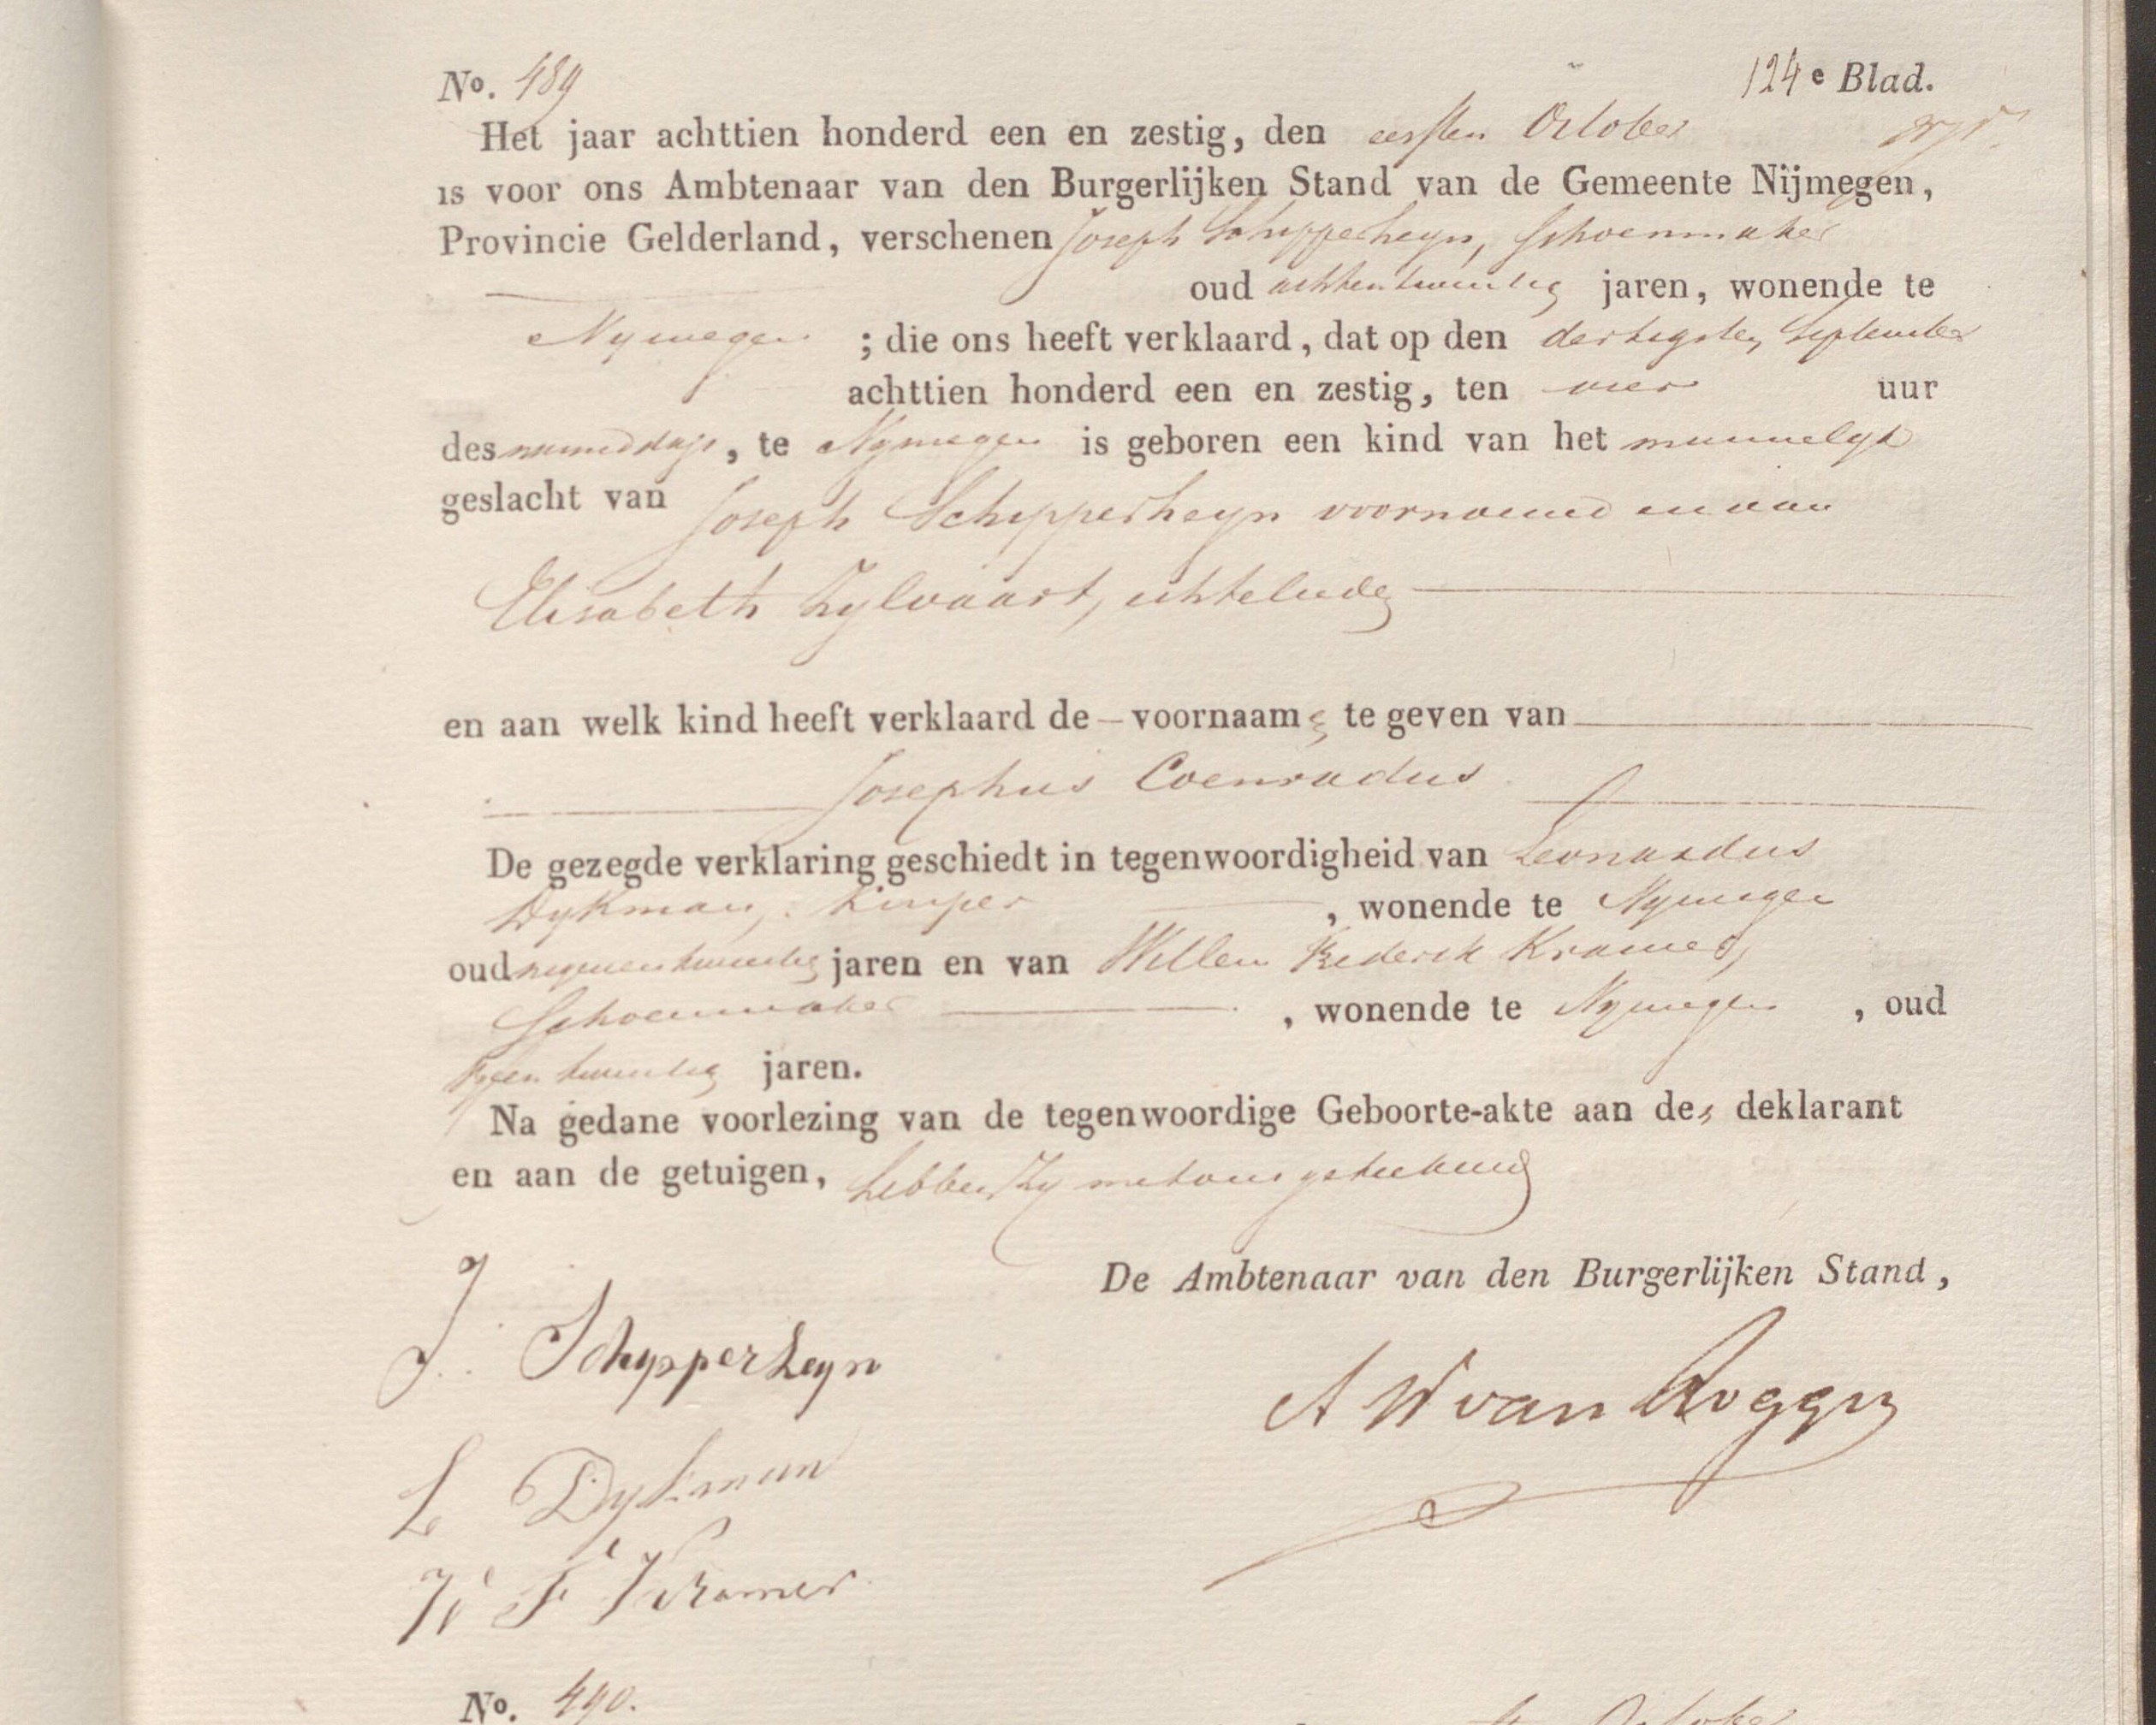 No. 489
124e Blad.
Het jaar achttien honderd een en zestig, den eersten October
is voor ons Ambtenaar van den Burgerlijken Stand van de Gemeente Nijmegen,
Provincie Gelderland, verschenen Joseph Schipperheyn, Schoenmaker
oud achtentwintig jaren, wonende te
Nymegen ; die ons heeft verklaard, dat op den dertigsten September
achttien honderd een en zestig, ten vier uur
des namiddags, te Nymegen is geboren een kind van het mannelyk
geslacht van Joseph Schipperheyn voornoemd en van
Elisabeth Zylvaart, echtelieden
en aan welk kind heeft verklaard de – voornaam te geven van
Josephus Coenradus
De gezegde verklaring geschiedt in tegenwoordigheid van Leonardus
Dykman, wonende te Nymegen
oud negenentwintig jaren en van Willem Frederik Kramer,
Schoenmaker, wonende te Nymegen, oud
twintig jaren.
Na gedane voorlezing van de tegenwoordige Geboorte-akte aan den deklarant
en aan de getuigen, hebben zy met ons geteekend
De Ambtenaar van den Burgerlijken Stand,
J. Schypperheyn
A W van Roggen
L Dykman
W F Kramer
No. 490.
October